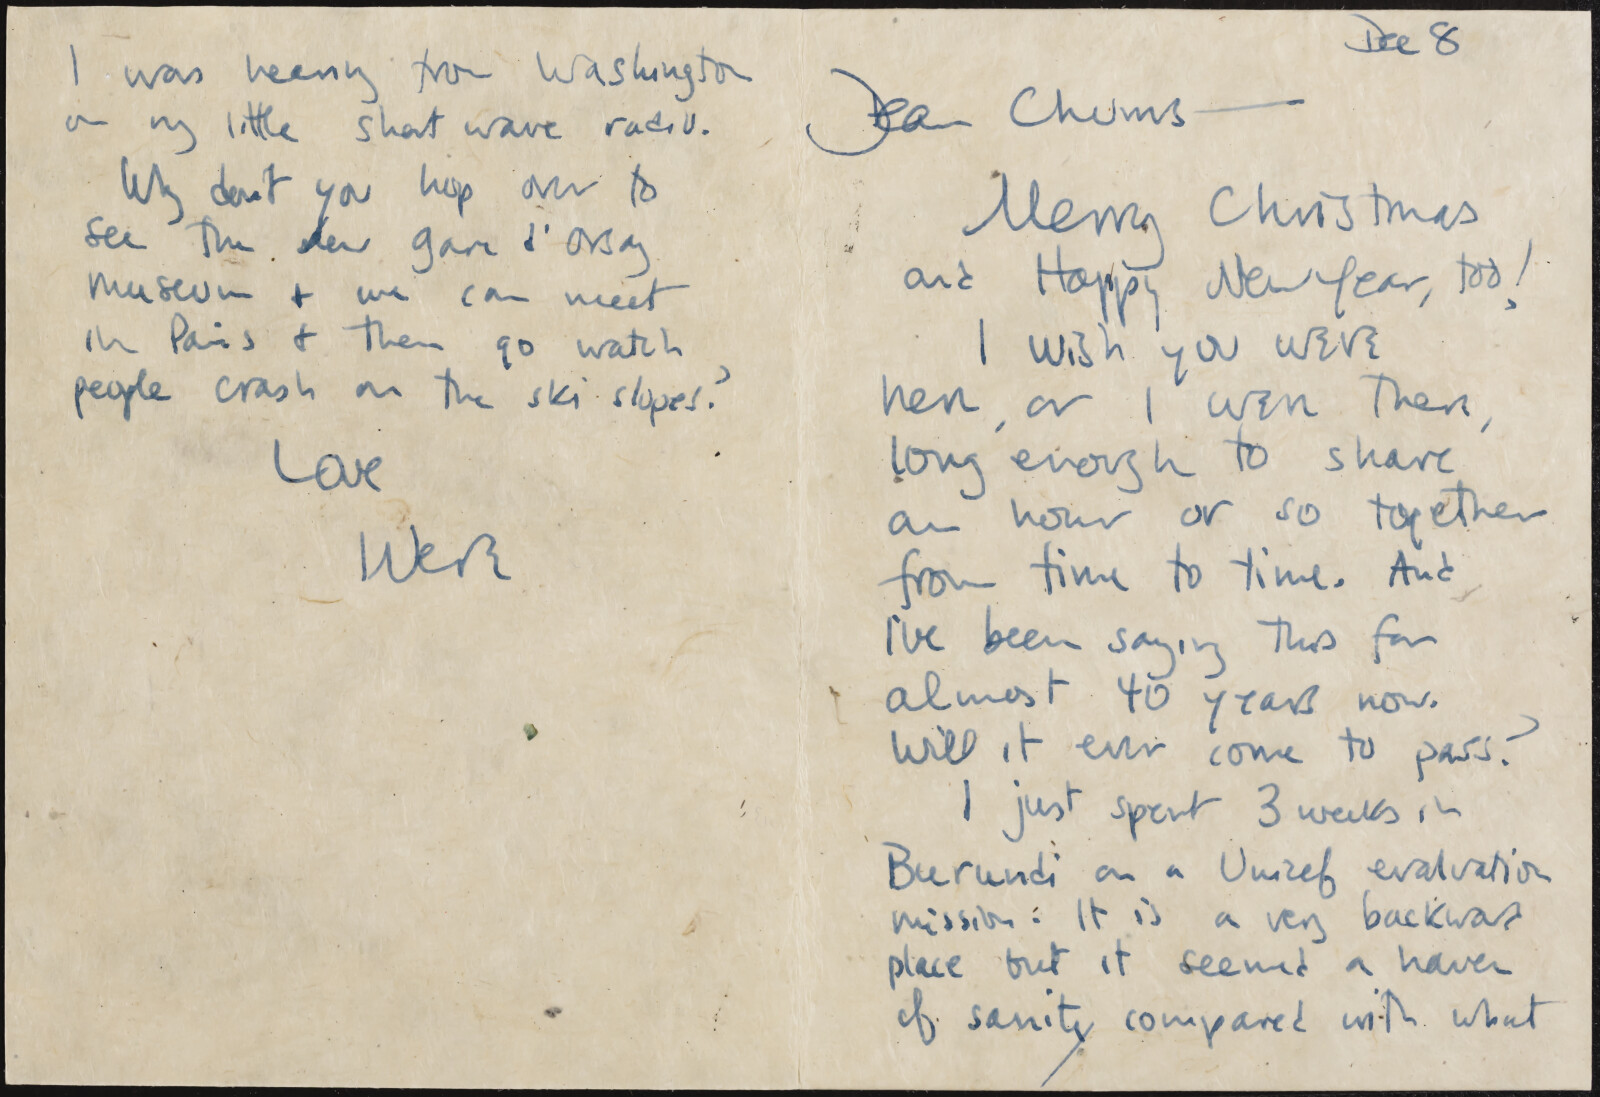 Dec 8
Dear Chums —
Merry Christmas
and Happy New Year, too!
I wish you were
here, or I were there,
long enough to share
an hour or so together
from time to time. And
I've been saying this for
almost 40 years now.
Will it ever come to pass?
I just spent 3 weeks in
Burundi on a Unicef evaluation
mission: It is a very backward
place but it seemed a haven
of sanity compared with what
I was hearing from Washington
on my little short wave radio.
Why don't you hop over to
see the new gare d'Orsay
museum & we can meet
in Paris & then go watch
people crash on the ski slopes?
Love